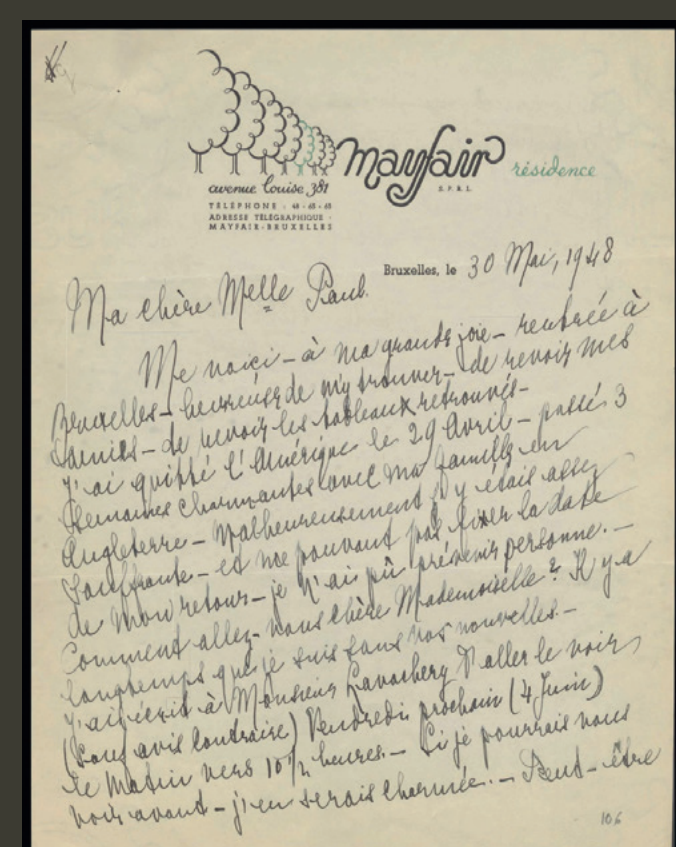 mayfair résidence
S.P.R.L.
avenue louise, 381
TÉLÉPHONE : 48-65-65
ADRESSE TÉLÉGRAPHIQUE -
MAYFAIR-BRUXELLES
Bruxelles, le 30 Mai, 1948
Ma chère Melle Paul.
Me voici – à ma grande joie – rentrée à
Bruxelles – heureuse de m'y trouver – de revoir mes
amies – de revoir les tableaux retrouvés –
J'ai quitté l'Amérique le 29 Avril – passé 3
semaines charmantes avec ma famille en
Angleterre – Malheureusement j'y étais assez
souffrante – et ne pouvant pas fixer la date
de mon retour – je n'ai pû prévenir personne. –
Comment allez-vous chère Mademoiselle ? Il y a
longtemps que je suis sans vos nouvelles. –
J'ai écrit à Monsieur Lavachery d'aller le voir
(sauf avis contraire) Vendredi prochain (4 Juin)
le matin vers 10 1/2 heures. – Si je pourrais vous
voir avant – j'en serais charmée. – Peut-être
106